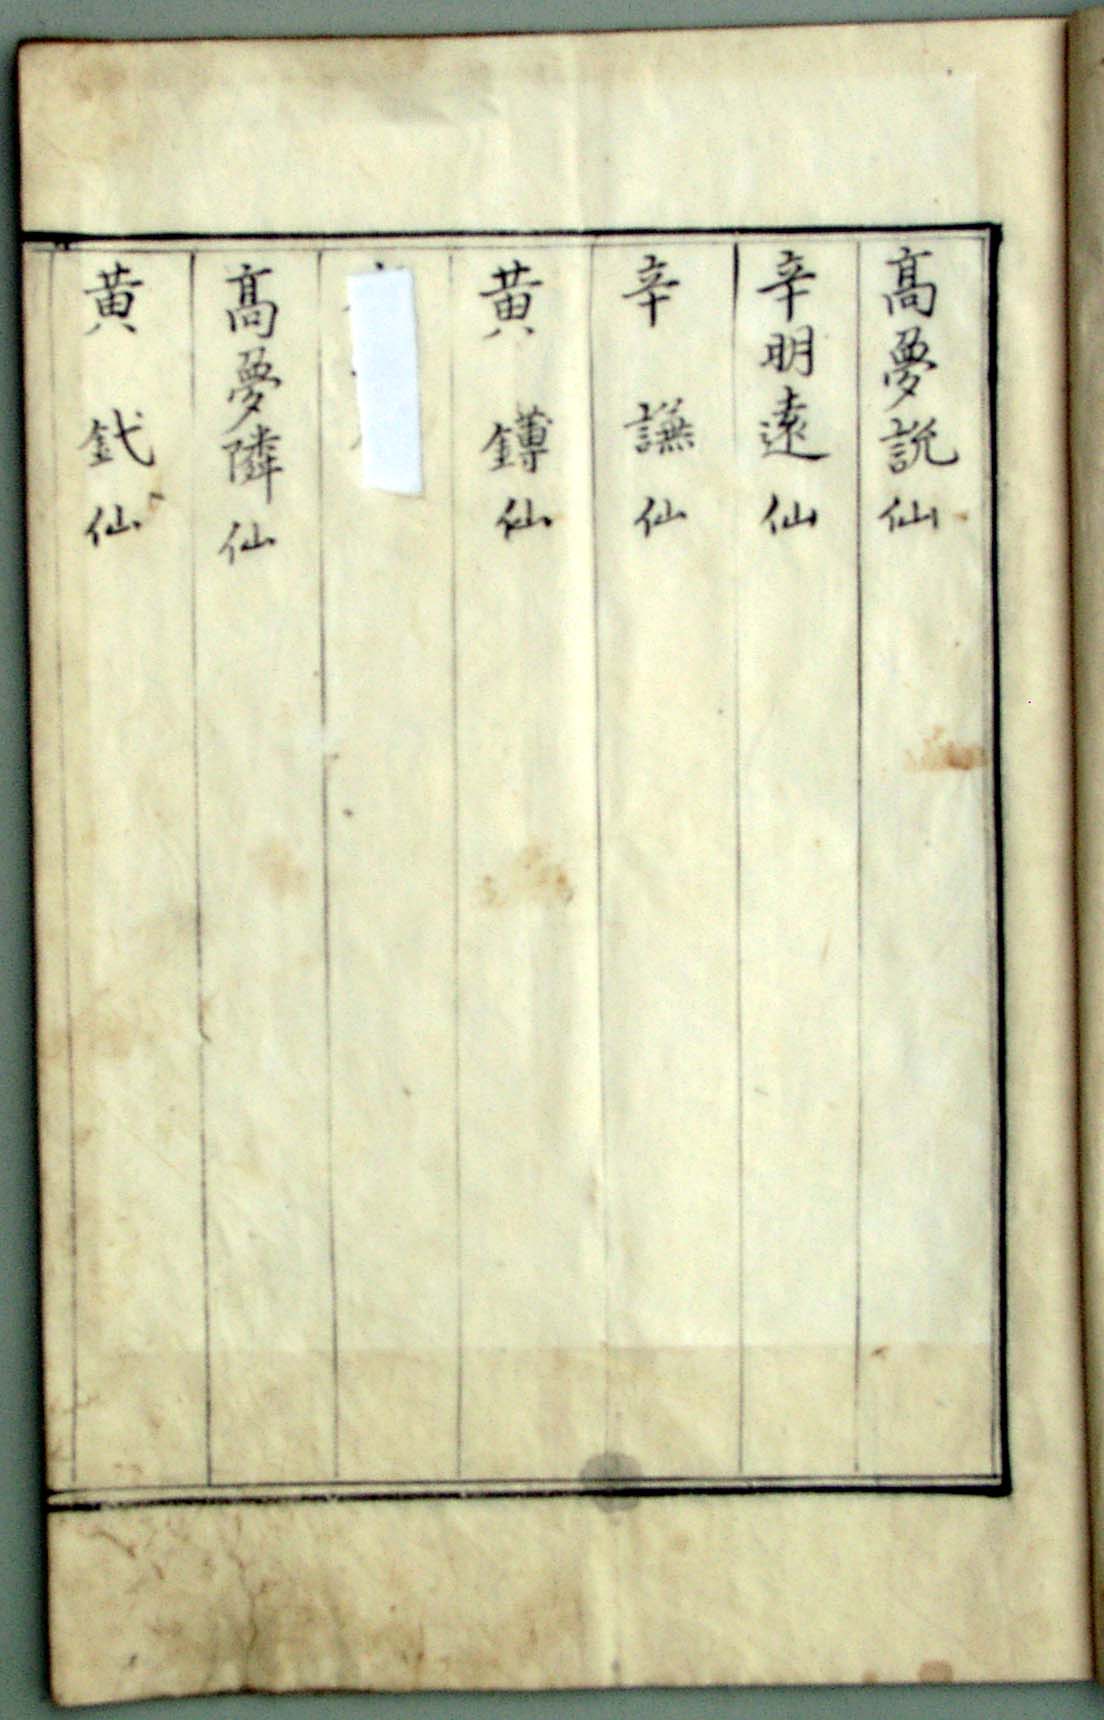 高夢說仙
辛明遠仙
辛謙仙
黄鐏仙
高夢隣仙
黄釴仙